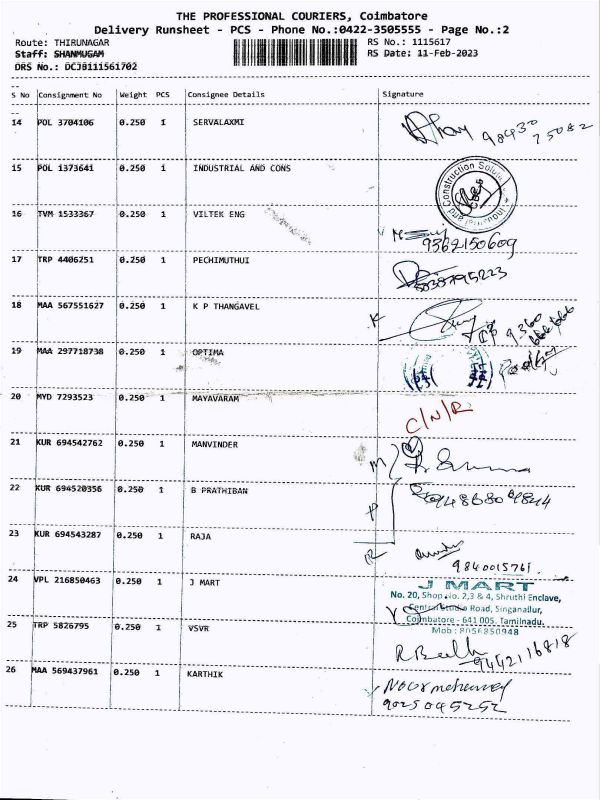 THE PROFESSIONAL COURIERS, Coimbatore
Delivery Runsheet - PCS - Phone No.:0422-3505555 - Page No.:2
Route: THIRUNAGAR RS No.: 1115617
Staff: SHANMUGAM RS Date: 11-Feb-2023
DRS No.: DCJB111561702
S No Consignment No Weight PCS Consignee Details Signature
14 POL 3704106 0.250 1 SERVALAXMI
98430 75082
15 POL 1373641 0.250 1 INDUSTRIAL AND CONS
Construction
16 TVM 1533367 0.250 1 VILTEK ENG
9362150609
17 TRP 4406251 0.250 1 PECHIMUTHUI
18 MAA 567551627 0.250 1 K P THANGAVEL
K
19 MAA 297718738 0.250 1 OPTIMA
20 MYD 7293523 0.250 1 MAYAVARAM
C/N/R
21 KUR 694542762 0.250 1 MANVINDER
M
22 KUR 694520356 0.250 1 B PRATHIBAN
P
23 KUR 694543287 0.250 1 RAJA
R
9840015761
24 VPL 216850463 0.250 1 J MART
J MART
No. 20, Shop No. 2,3 & 4, Shruthi Enclave,
Central Studio Road, Singanallur,
Coimbatore - 641 005. Tamilnadu.
Mob : 8056850948
25 TRP 5826795 0.250 1 VSVR
9442116818
26 MAA 569437961 0.250 1 KARTHIK
9025045252